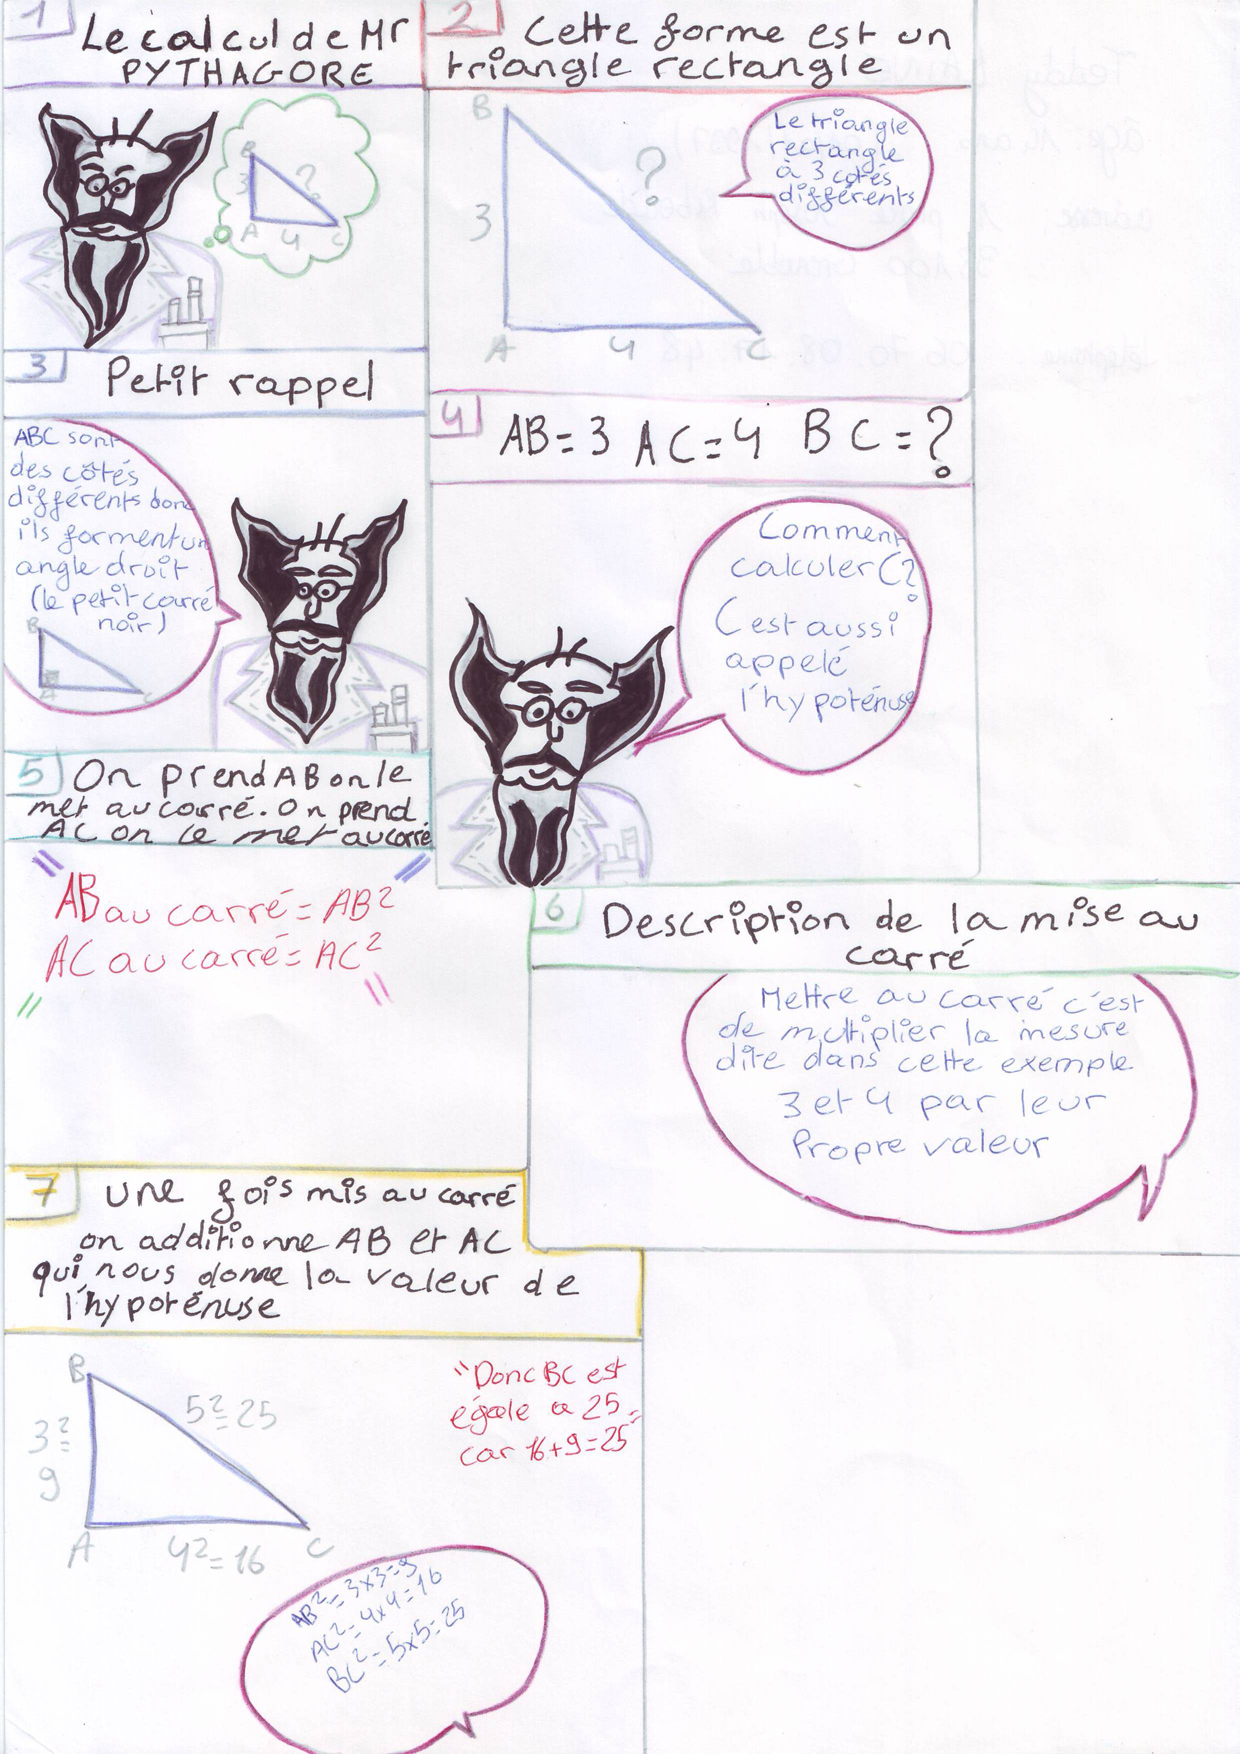 1
Le calcul de Mr
PYTHAGORE
B
3
?
A
4
C
2
Cette forme est un
triangle rectangle
B
3
?
A
4
C
Le triangle
rectangle
à 3 cotés
différents
3
Petit rappel
ABC sont
des côtés
différents donc
ils forment un
angle droit
(le petit carré
noir)
B
A
C
4
AB = 3 AC = 4 BC = ?
Comment
calculer C?
C est aussi
appelé
l'hypoténuse
5
On prend AB on le
met au carré. On prend
AC on le met au carré
"
AB au carré = AB²
AC au carré = AC²
"
6
Description de la mise au
carré
Mettre au carré c'est
de multiplier la mesure
dite dans cette exemple
3 et 4 par leur
Propre valeur
7
une fois mis au carré
on additionne AB et AC
qui nous donne la valeur de
l'hypoténuse
B
3² =
9
5² = 25
A
4² = 16
C
"Donc BC est
égale a 25
car 16+9=25"
AB² = 3x3=9
AC² = 4x4=16
BC² = 5x5=25